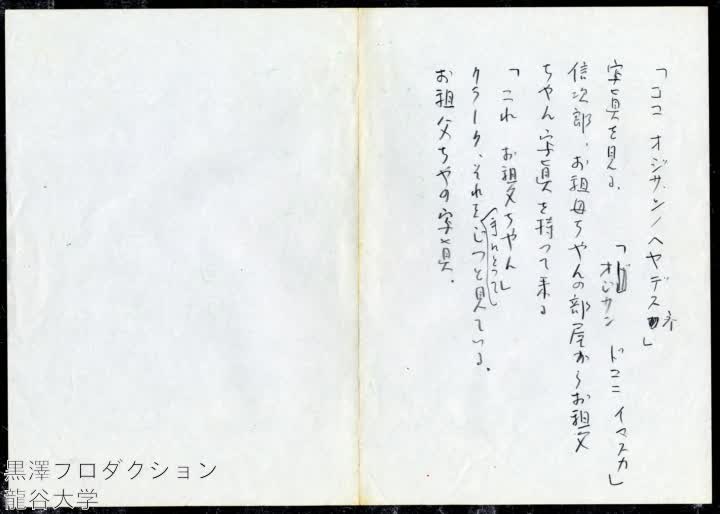 「ココ オジサンノヘヤデスネ」
写真を見る。
「オジサン ドコニ イマスカ」
信次郎、お祖母ちやんの部屋からお祖父
ちやん写真を持つて来る
「これ お祖父ちやん」
クラーク、それを手にとつてじつと見ている。
お祖父ちやの写真。
黒澤プロダクション
龍谷大学